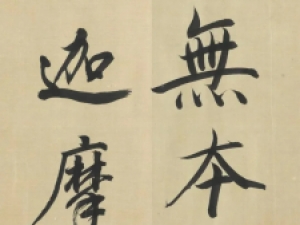 無本
迦摩